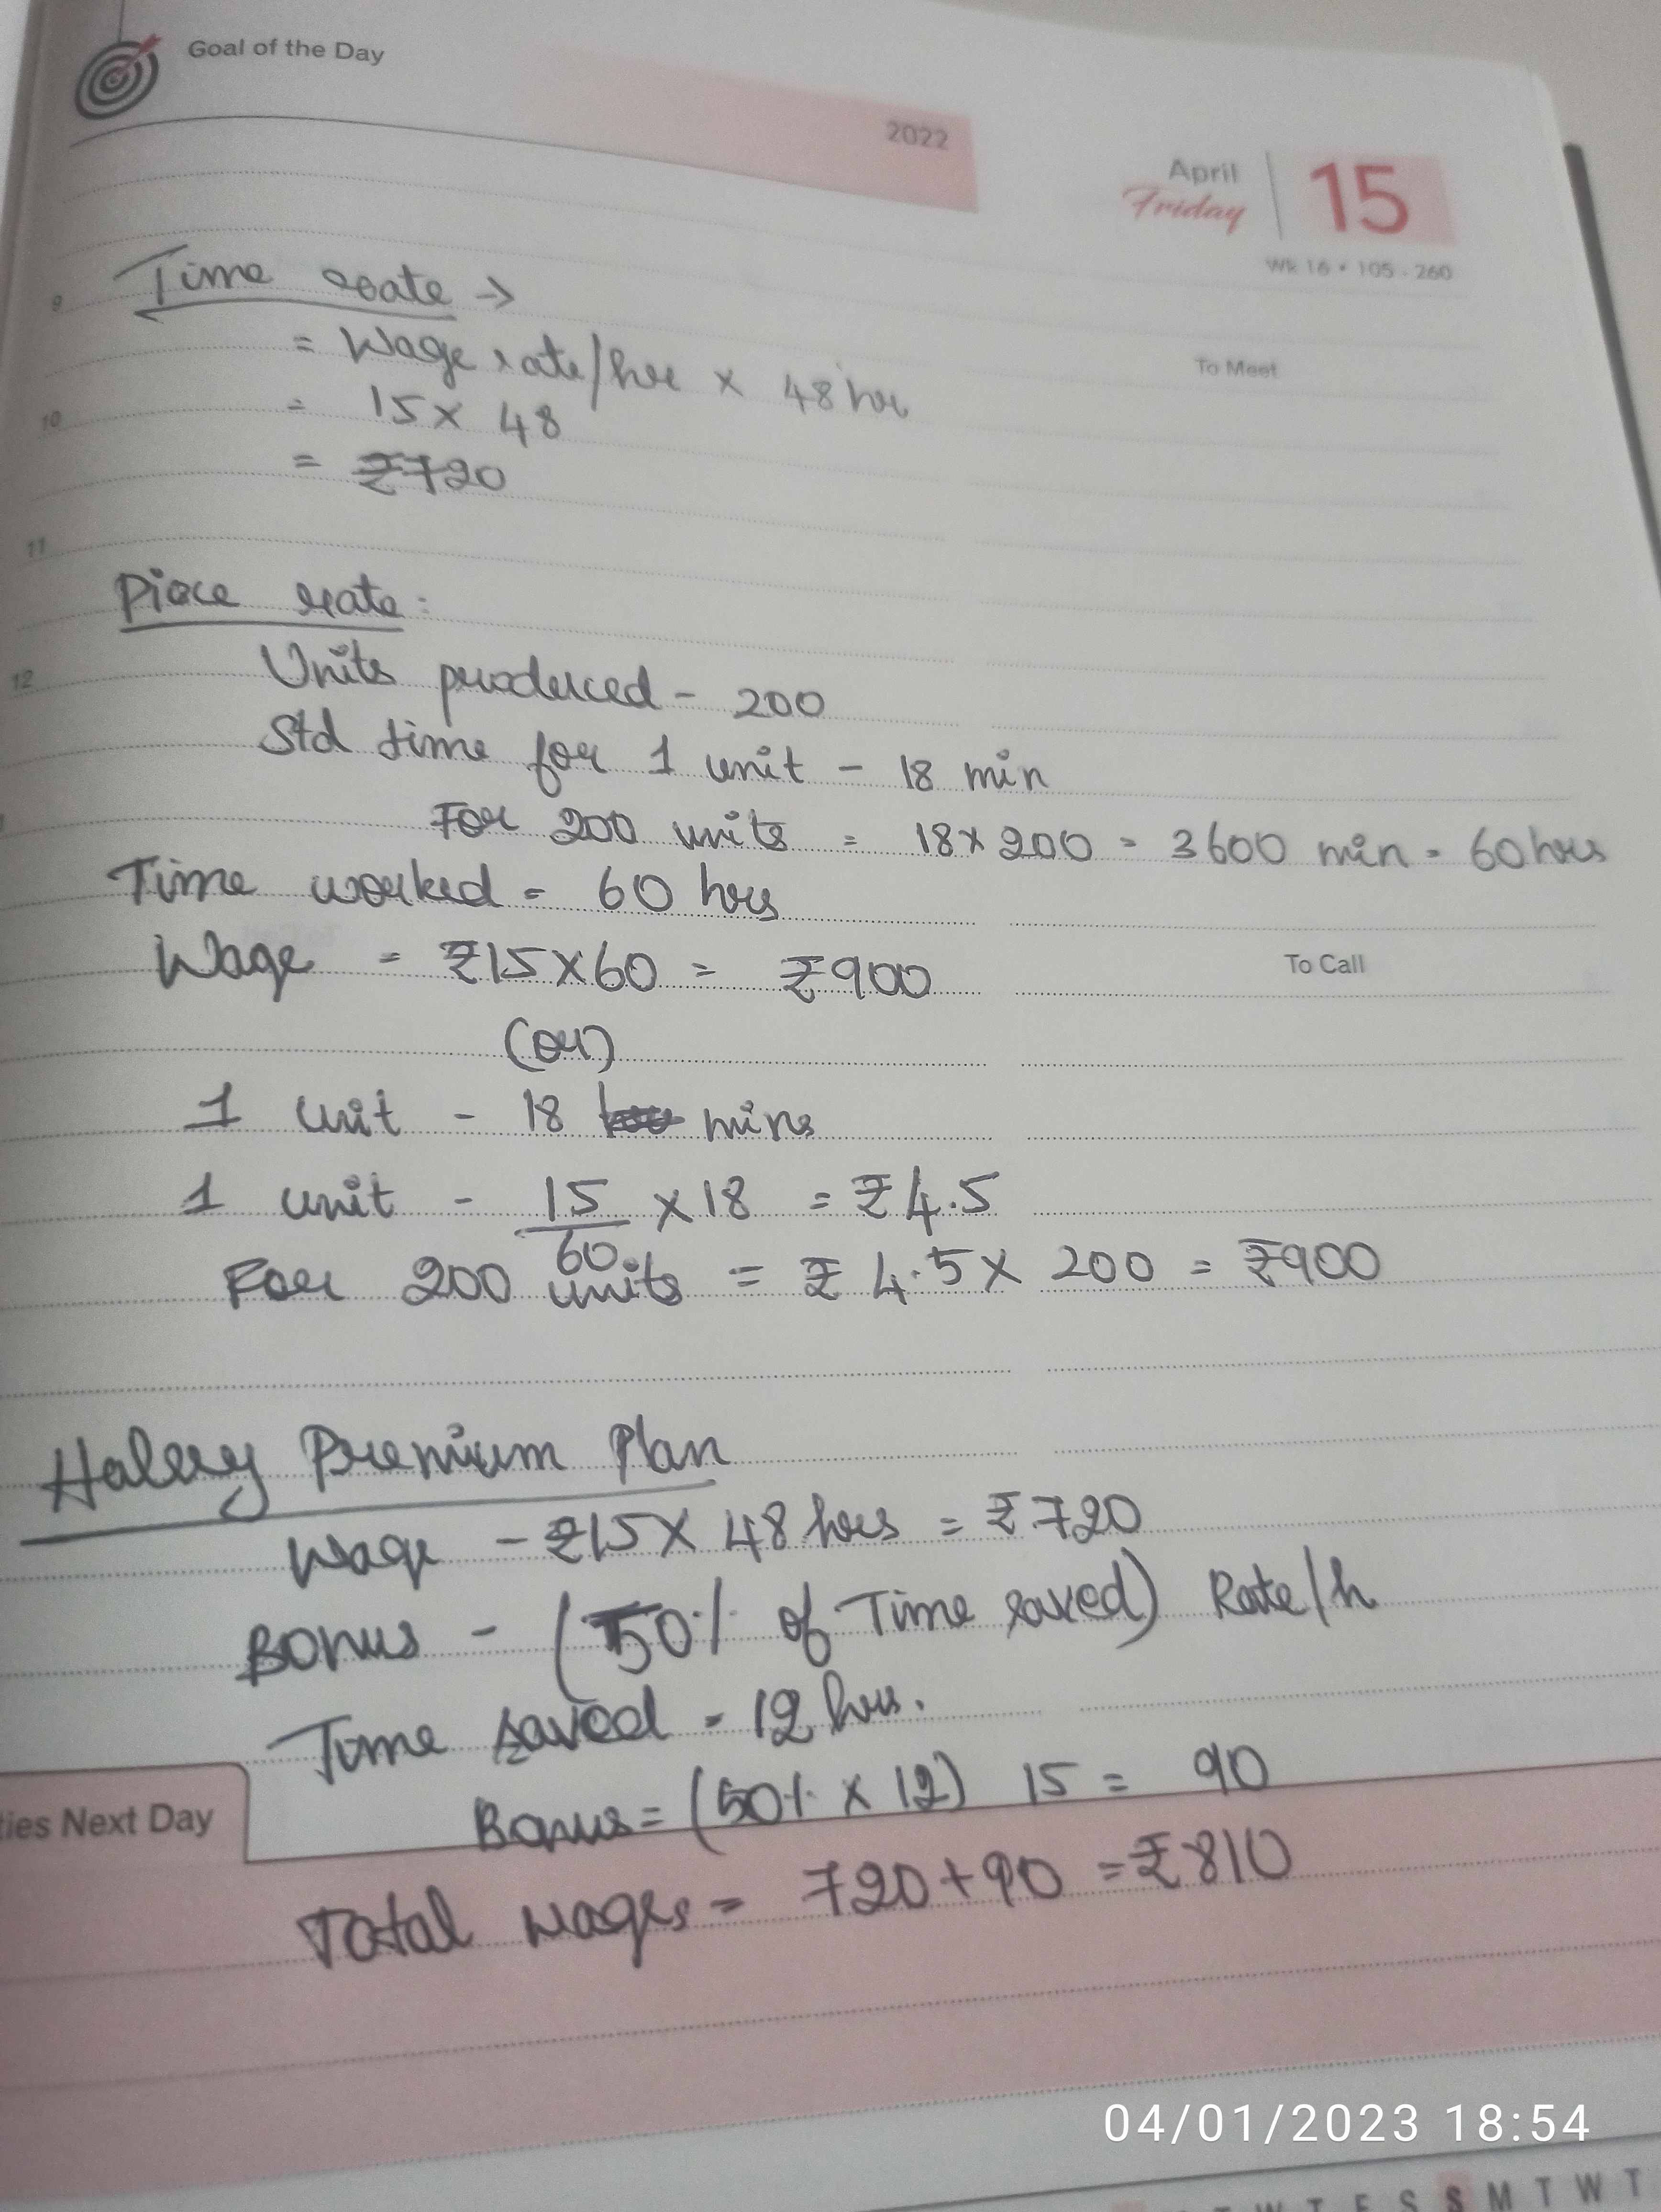 Goal of the Day
2022
April
Friday
15
Wk 16 • 105 - 260
Time rate →
9
= Wage rate/hr × 48 hr
To Meet
10
= 15 × 48
= ₹720
11
Piece rate:
12
Units produced - 200
Std time for 1 unit - 18 min
For 200 units = 18×200 = 3600 min = 60 hrs
Time worked = 60 hrs
Wage = ₹15×60 = ₹900
To Call
(or)
1 unit - 18 mins
1 unit - 15/60 ×18 = ₹4.5
For 200 units = ₹4.5× 200 = ₹900
Halsey Premium Plan
Wage - ₹15× 48 hrs = ₹720
Bonus - (50% of Time saved) Rate/h
Time saved = 12 hrs.
Bonus = (50% × 12) 15 = 90
ties Next Day
Total wages = 720+90 = ₹810
04/01/2023 18:54
T W T F S S M T W T